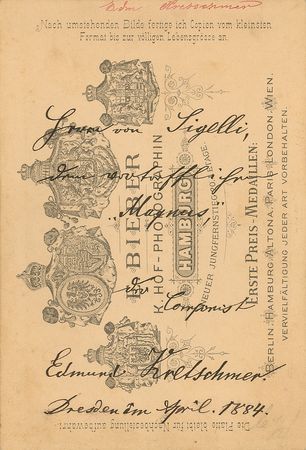 Edm Kretschmer
„Nach umstehendem Bilde fertige ich Copien vom kleinsten
Format bis zur völligen Lebensgrösse an.
Herrn von Sigelli,
dem vortrefflichen
„Magnus"
der Componist
Edmund Kretschmer.
Dresden im April. 1884.
E. BIEBER
K. HOF-PHOTOGRAPHIN
HAMBURG
NEUER JUNGFERNSTIEG 20. 1. ETAGE.
ERSTE PREIS-MEDAILLEN:
BERLIN. HAMBURG-ALTONA. PARIS. LONDON. WIEN.
VERVIELFÄLTIGUNG JEDER ART VORBEHALTEN.
Die Platte bleibt für Nachbestellung aufbewahrt.